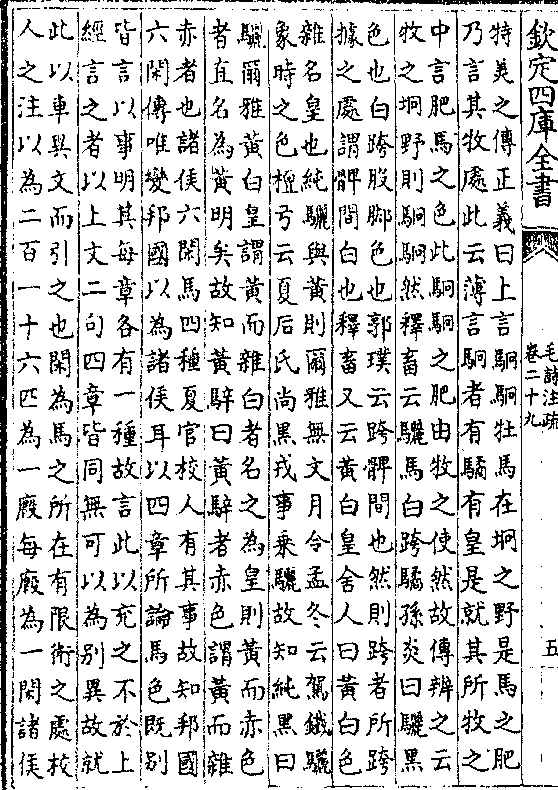 欽定四庫全書
毛詩注疏
卷二十九
五
特美之傳正義曰上言駉駉牡馬在坰之野是馬之肥
乃言其牧處此云薄言駉者有驈有皇是就其所牧之
中言肥馬之色此駉駉之肥由牧之使然故傳辨之云
牧之坰野則駉駉然釋畜云驪馬白跨驈孫炎曰驪黑
色也白跨股腳色也郭璞云跨髀間也然則跨者所跨
據之處謂髀間白也釋畜又云黃白皇舍人曰黃白色
雜名皇也純驪與黃則爾雅無文月令孟冬云駕鐵驪
象時之色檀弓云夏后氏尚黑戎事乗驪故知純黑曰
驪爾雅黃白皇謂黃而雜白者名之為皇則黃而赤色
者直名為黃明矣故知黃騂曰黃騂者赤色謂黃而雜
赤者也諸侯六閑馬四種夏官校人有其事故知邦國
六閑傳唯變邦國以為諸侯耳以四章所論馬色既别
皆言以事明其每章各有一種故言此以充之不於上
經言之者以上文二句四章皆同無可以為别異故就
此以車異文而引之也閑為馬之所在有限衛之處校
人之注以為二百一十六匹為一廄每廄為一閑諸侯